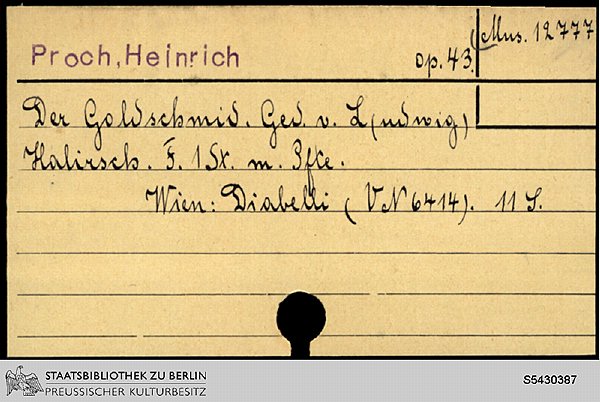 Mus. 12777
Proch, Heinrich
op. 43.
Der Goldschmid. Ged. v. L(udwig)
Halirsch. F. 1 St. m. Pfte.
Wien: Diabelli (VN 6414). 11 S.
STAATSBIBLIOTHEK ZU BERLIN
PREUSSISCHER KULTURBESITZ
S5430387